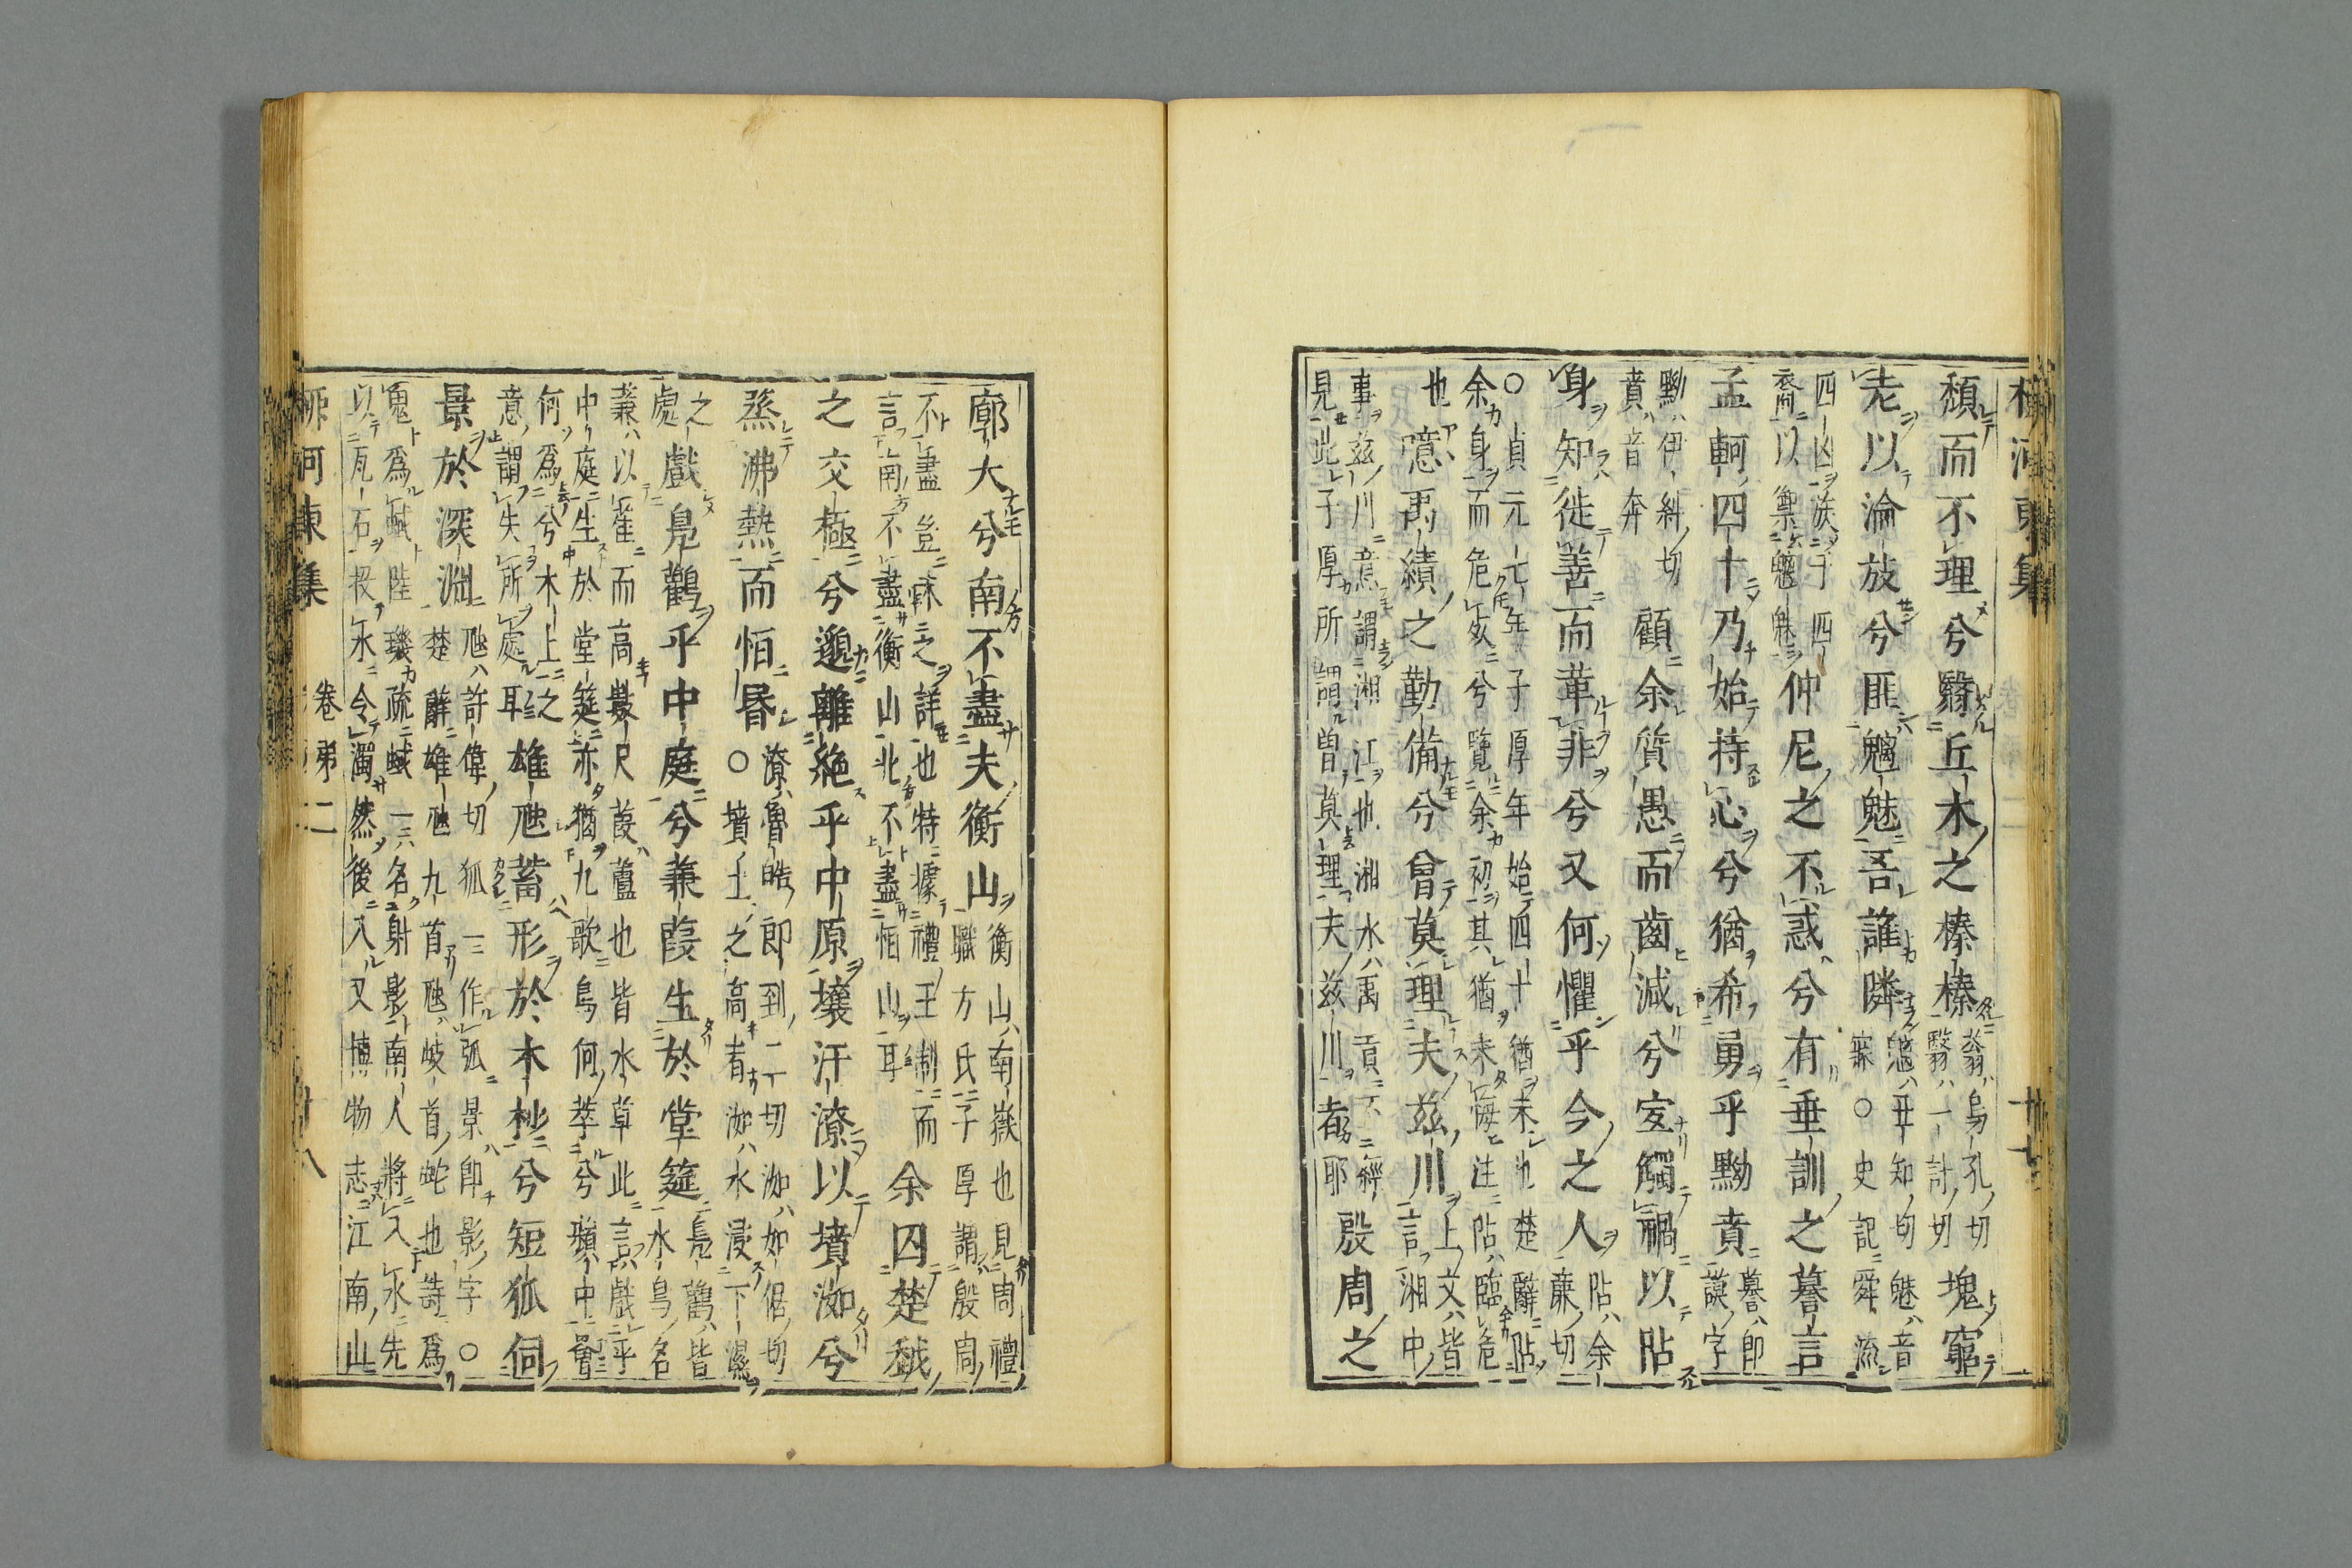 頹而不理兮翳丘木之榛榛
翁烏孔切
翳一計切
塊窮
老以淪放兮匪魑魅吾誰隣
魑丑知切魅音
寐〇史記舜流
四凶族于四
裔以禦魑魅
仲尼之不惑兮有垂訓之謩言
孟軻四十乃始持心兮猶希勇乎黝賁
謩即
謨字
黝伊糾切
賁音奔
顧余質愚而齒減兮宜觸禍以阽
身知徙善而革非兮又何懼乎今之人
阽余
廉切
〇貞元七年子厚年始四十猶未也楚辭阽
余身而危死兮覽余初其猶未悔注阽臨危
也
噫禹績之勤備兮曾莫理夫茲川
上文皆
言湘中
事茲川意謂湘江也湘水禹貢不經
見此子厚所謂曾莫理夫茲川者耶
殷周之
廓大兮南不盡夫衡山
衡山南嶽也見周禮
職方氏子厚謂殷周
不盡豈寐之詳也特據禮王制而
言南不盡衡山北不盡恒山耳
余囚楚越
之交極兮邈離絕乎中原壤汙潦以墳洳兮
蒸沸熱而恒昏
潦魯皓即到二切洳如倨切
〇墳土之高者洳水浸下濕
之
處
戲鳧鸛乎中庭兮蒹葭生於堂筵
鳧鸛皆
水鳥名
蒹以萑而高數尺葭蘆也皆水草此言戲乎
中庭生於堂筵亦猶九歌鳥何萃兮蘋中罾
何為兮木上之
意謂失所處耳
雄虺蓄形於木杪兮短狐伺
景於深淵
虺許偉切狐一作弧景即影字〇
楚辭雄虺九首虺岐首蛇也詩為
鬼為蜮陸璣疏蜮一名射影南人將入水先
以瓦石投水令濁然後入又博物志江南山
柳河東集
卷第二